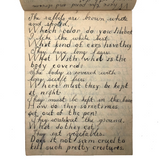 The rabbits are brown, white
and spotted.
Which color do you like best
I like the white ones.
What kind of ears have they
They have long ears.
What is the
body covered
The body is covered with
long soft hair
Where must they be kept
at night
They must be kept in the
How do they sometimes
get out of the pen
They burrow the ground
What do they eat
They eat vegetables
Does it not seem cruel to
kill such pretty creatures